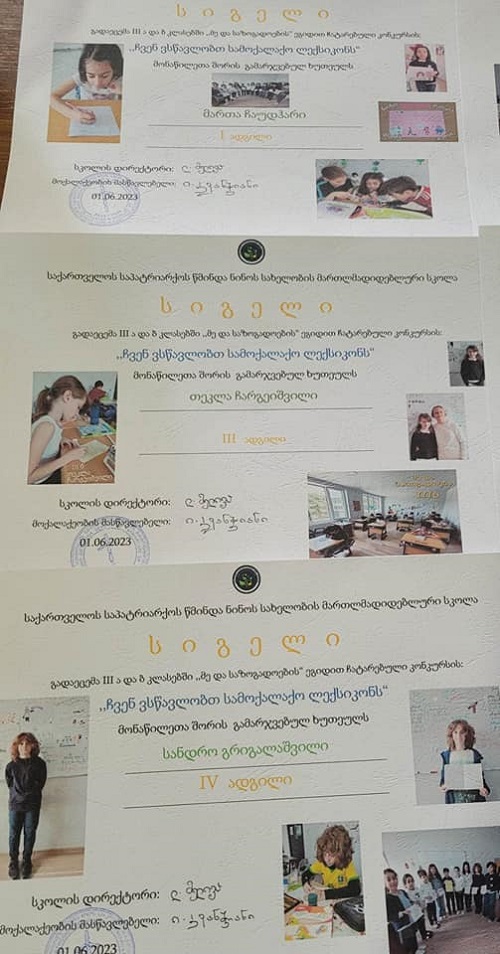 ს ი გ ე ლ ი
გადაეცემა III ა და ბ კლასებში „მე და საზოგადოების" ეგიდით ჩატარებული კონკურსის:
„ჩვენ ვსწავლობთ სამოქალაქო ლექსიკონს"
მონაწილეთა შორის გამარჯვებულ ხუთეულს
მართა ჩაუდჰარი
I ადგილი
სკოლის დირექტორი:
მოქალაქეობის მასწავლებელი:
01.06.2023
საქართველოს საპატრიარქოს წმინდა ნინოს სახელობის მართლმადიდებლური სკოლა
ს ი გ ე ლ ი
გადაეცემა III ა და ბ კლასებში „მე და საზოგადოების" ეგიდით ჩატარებული კონკურსის:
„ჩვენ ვსწავლობთ სამოქალაქო ლექსიკონს"
მონაწილეთა შორის გამარჯვებულ ხუთეულს
თეკლა ჩარგეიშვილი
III ადგილი
სკოლის დირექტორი:
მოქალაქეობის მასწავლებელი:
01.06.2023
საქართველოს საპატრიარქოს წმინდა ნინოს სახელობის მართლმადიდებლური სკოლა
ს ი გ ე ლ ი
გადაეცემა III ა და ბ კლასებში „მე და საზოგადოების" ეგიდით ჩატარებული კონკურსის:
„ჩვენ ვსწავლობთ სამოქალაქო ლექსიკონს"
მონაწილეთა შორის გამარჯვებულ ხუთეულს
სანდრო გრიგალაშვილი
IV ადგილი
სკოლის დირექტორი:
მოქალაქეობის მასწავლებელი:
01.06.2023